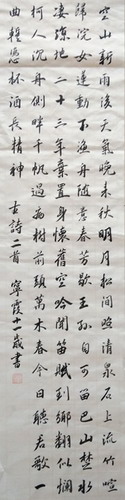 空山新雨後天氣晚来秋明月松間照清泉石上流竹喧
歸浣女蓮動下漁舟随意春芳歇王孫自可留巴山楚水
凄凉地二十三年棄置身懷舊空吟聞笛賦到鄉翻似爛
柯人沉舟側畔千帆過病樹前頭萬木春今日聽君歌一
曲暫憑杯酒長精神 古詩二首 寧霞十一歲書